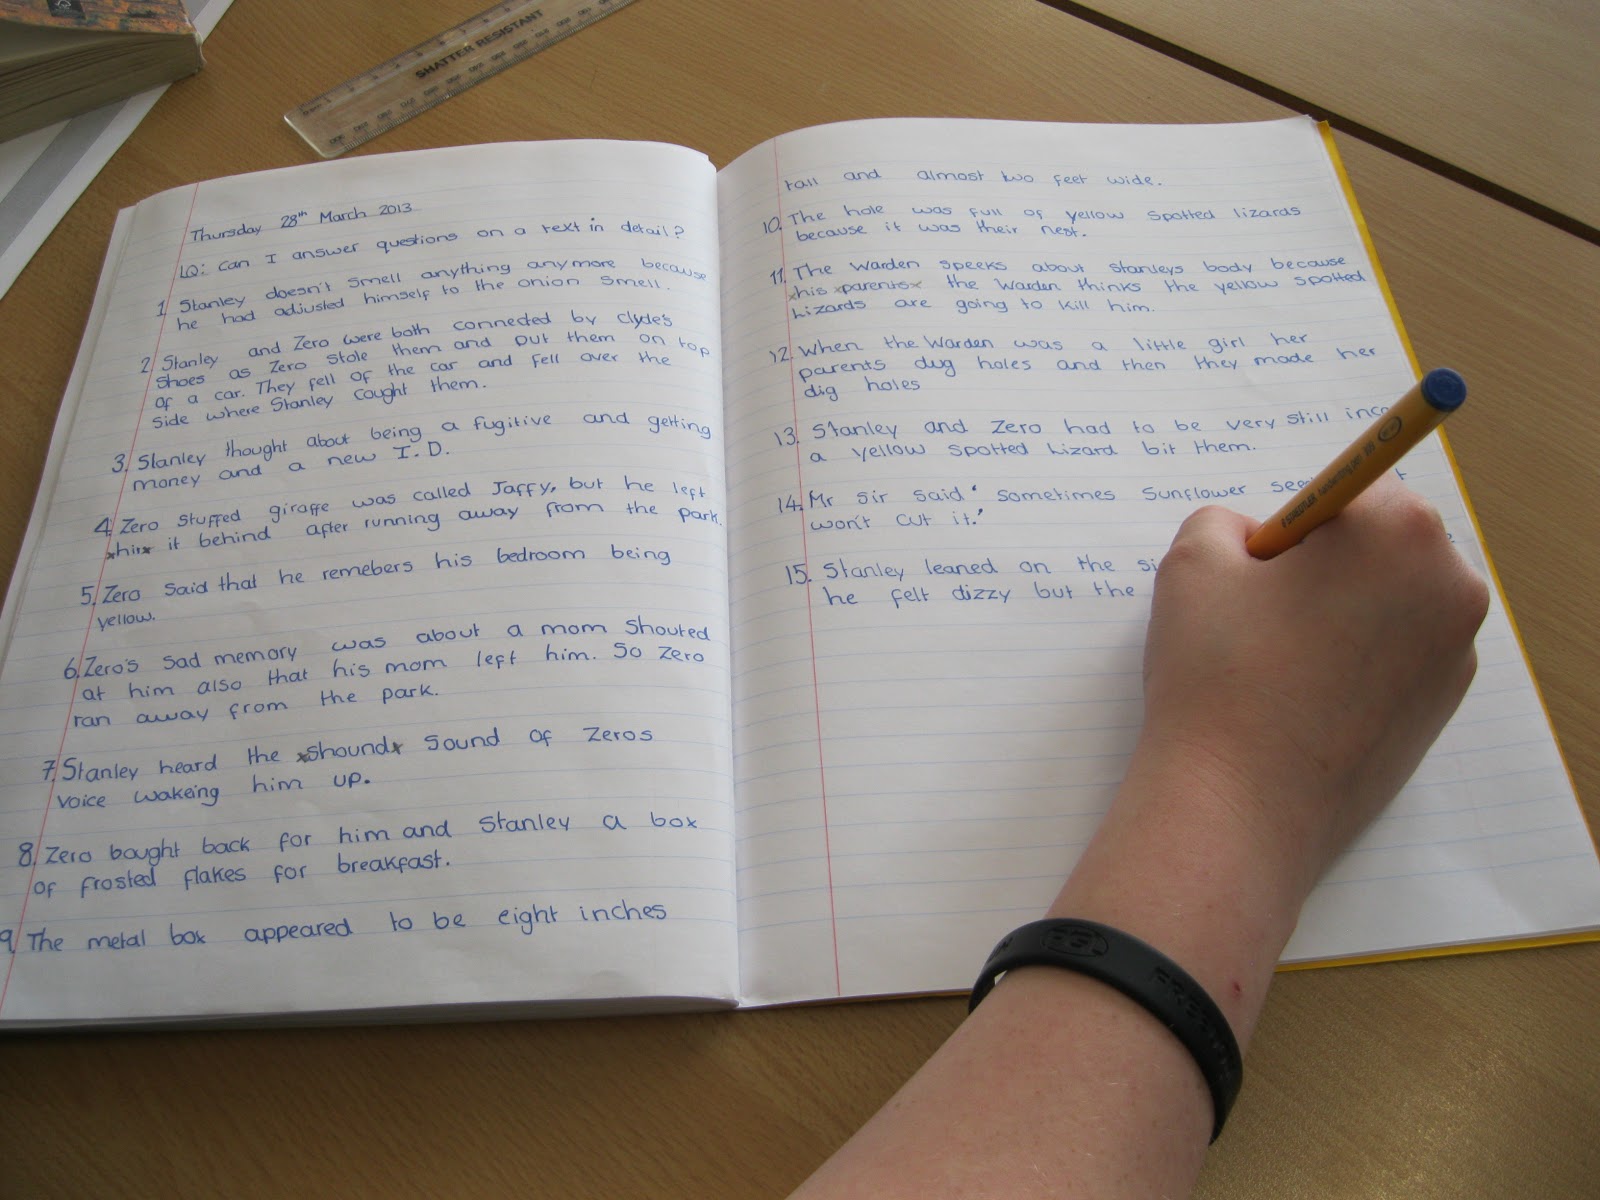 SHATTER RESISTANT
Thursday 28th March 2013
LQ: Can I answer questions on a text in detail?
1. Stanley doesn't smell anything anymore because
he had adjusted himself to the onion smell.
2. Stanley and Zero were both connected by Clyde's
shoes as Zero stole them and put them on top
of a car. They fell of the car and fell over the
side where Stanley caught them.
3. Stanley thought about being a fugitive and getting
money and a new I.D.
4. Zero stuffed giraffe was called Jaffy, but he left
it behind after running away from the park.
5. Zero said that he remebers his bedroom being
yellow.
6. Zero's sad memory was about a mom shouted
at him also that his mom left him. So Zero
ran away from the park.
7. Stanley heard the shound sound of Zeros
voice wakeing him up.
8. Zero bought back for him and Stanley a box
of frosted flakes for breakfast.
9. The metal box appeared to be eight inches
tall and almost two feet wide.
10. The hole was full of yellow spotted lizards
because it was their nest.
11. The Warden speeks about Stanleys body because
his parents the Warden thinks the yellow spotted
Lizards are going to kill him.
12. When the Warden was a little girl her
parents dug holes and then they made her
dig holes
13. Stanley and Zero had to be very still
a yellow spotted Lizard bit them.
14. Mr Sir said 'sometimes sunflower
won't cut it.'
15. Stanley leaned on the
he felt dizzy but the
STAEDTLER handwriting pen